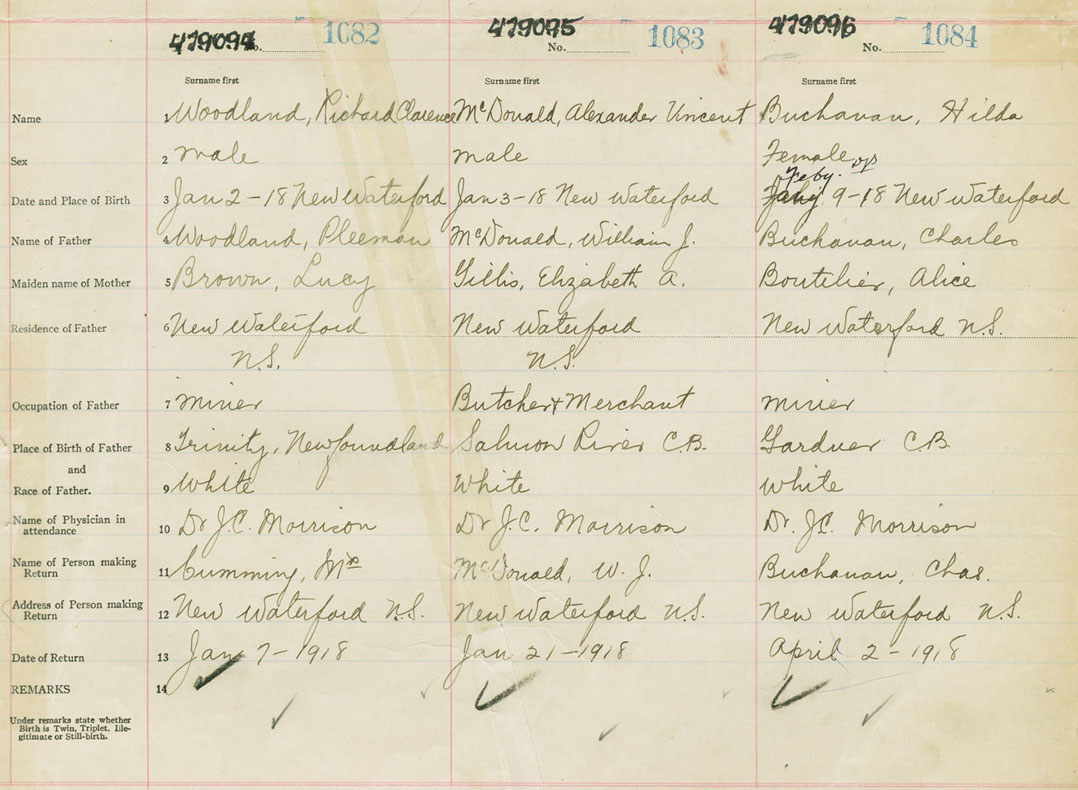 479094 No. 1082 479095 No. 1083 479096 No. 1084
Surname first Surname first Surname first
Name 1 Woodland, Richard Clarence McDonald, Alexander Vincent Buchanan, Hilda
Sex 2 male male Female
Feby.
Date and Place of Birth 3 Jan 2-18 New Waterford Jan 3-18 New Waterford 9-18 New Waterford
Name of Father 4 Woodland, Pleeman McDonald, William J. Buchanan, Charles
Maiden name of Mother 5 Brown, Lucy Gillis, Elizabeth A. Boutilier, Alice
Residence of Father 6 New Waterford New Waterford New Waterford N.S.
N.S. N.S.
Occupation of Father 7 miner Butcher & Merchant miner
Place of Birth of Father 8 Trinity, Newfoundland Salmon River C.B. Gardner C.B.
and
Race of Father. 9 White White White
Name of Physician in
attendance 10 Dr J.C. Morrison Dr J.C. Morrison Dr. J.C. Morrison
Name of Person making
Return 11 Cumming, Mrs McDonald, W. J. Buchanan, Chas.
Address of Person making
Return 12 New Waterford N.S. New Waterford N.S. New Waterford N.S.
Date of Return 13 Jan 7-1918 Jan 21-1918 April 2-1918
REMARKS 14
Under remarks state whether
Birth is Twin, Triplet, Ille-
gitimate or Still-birth.